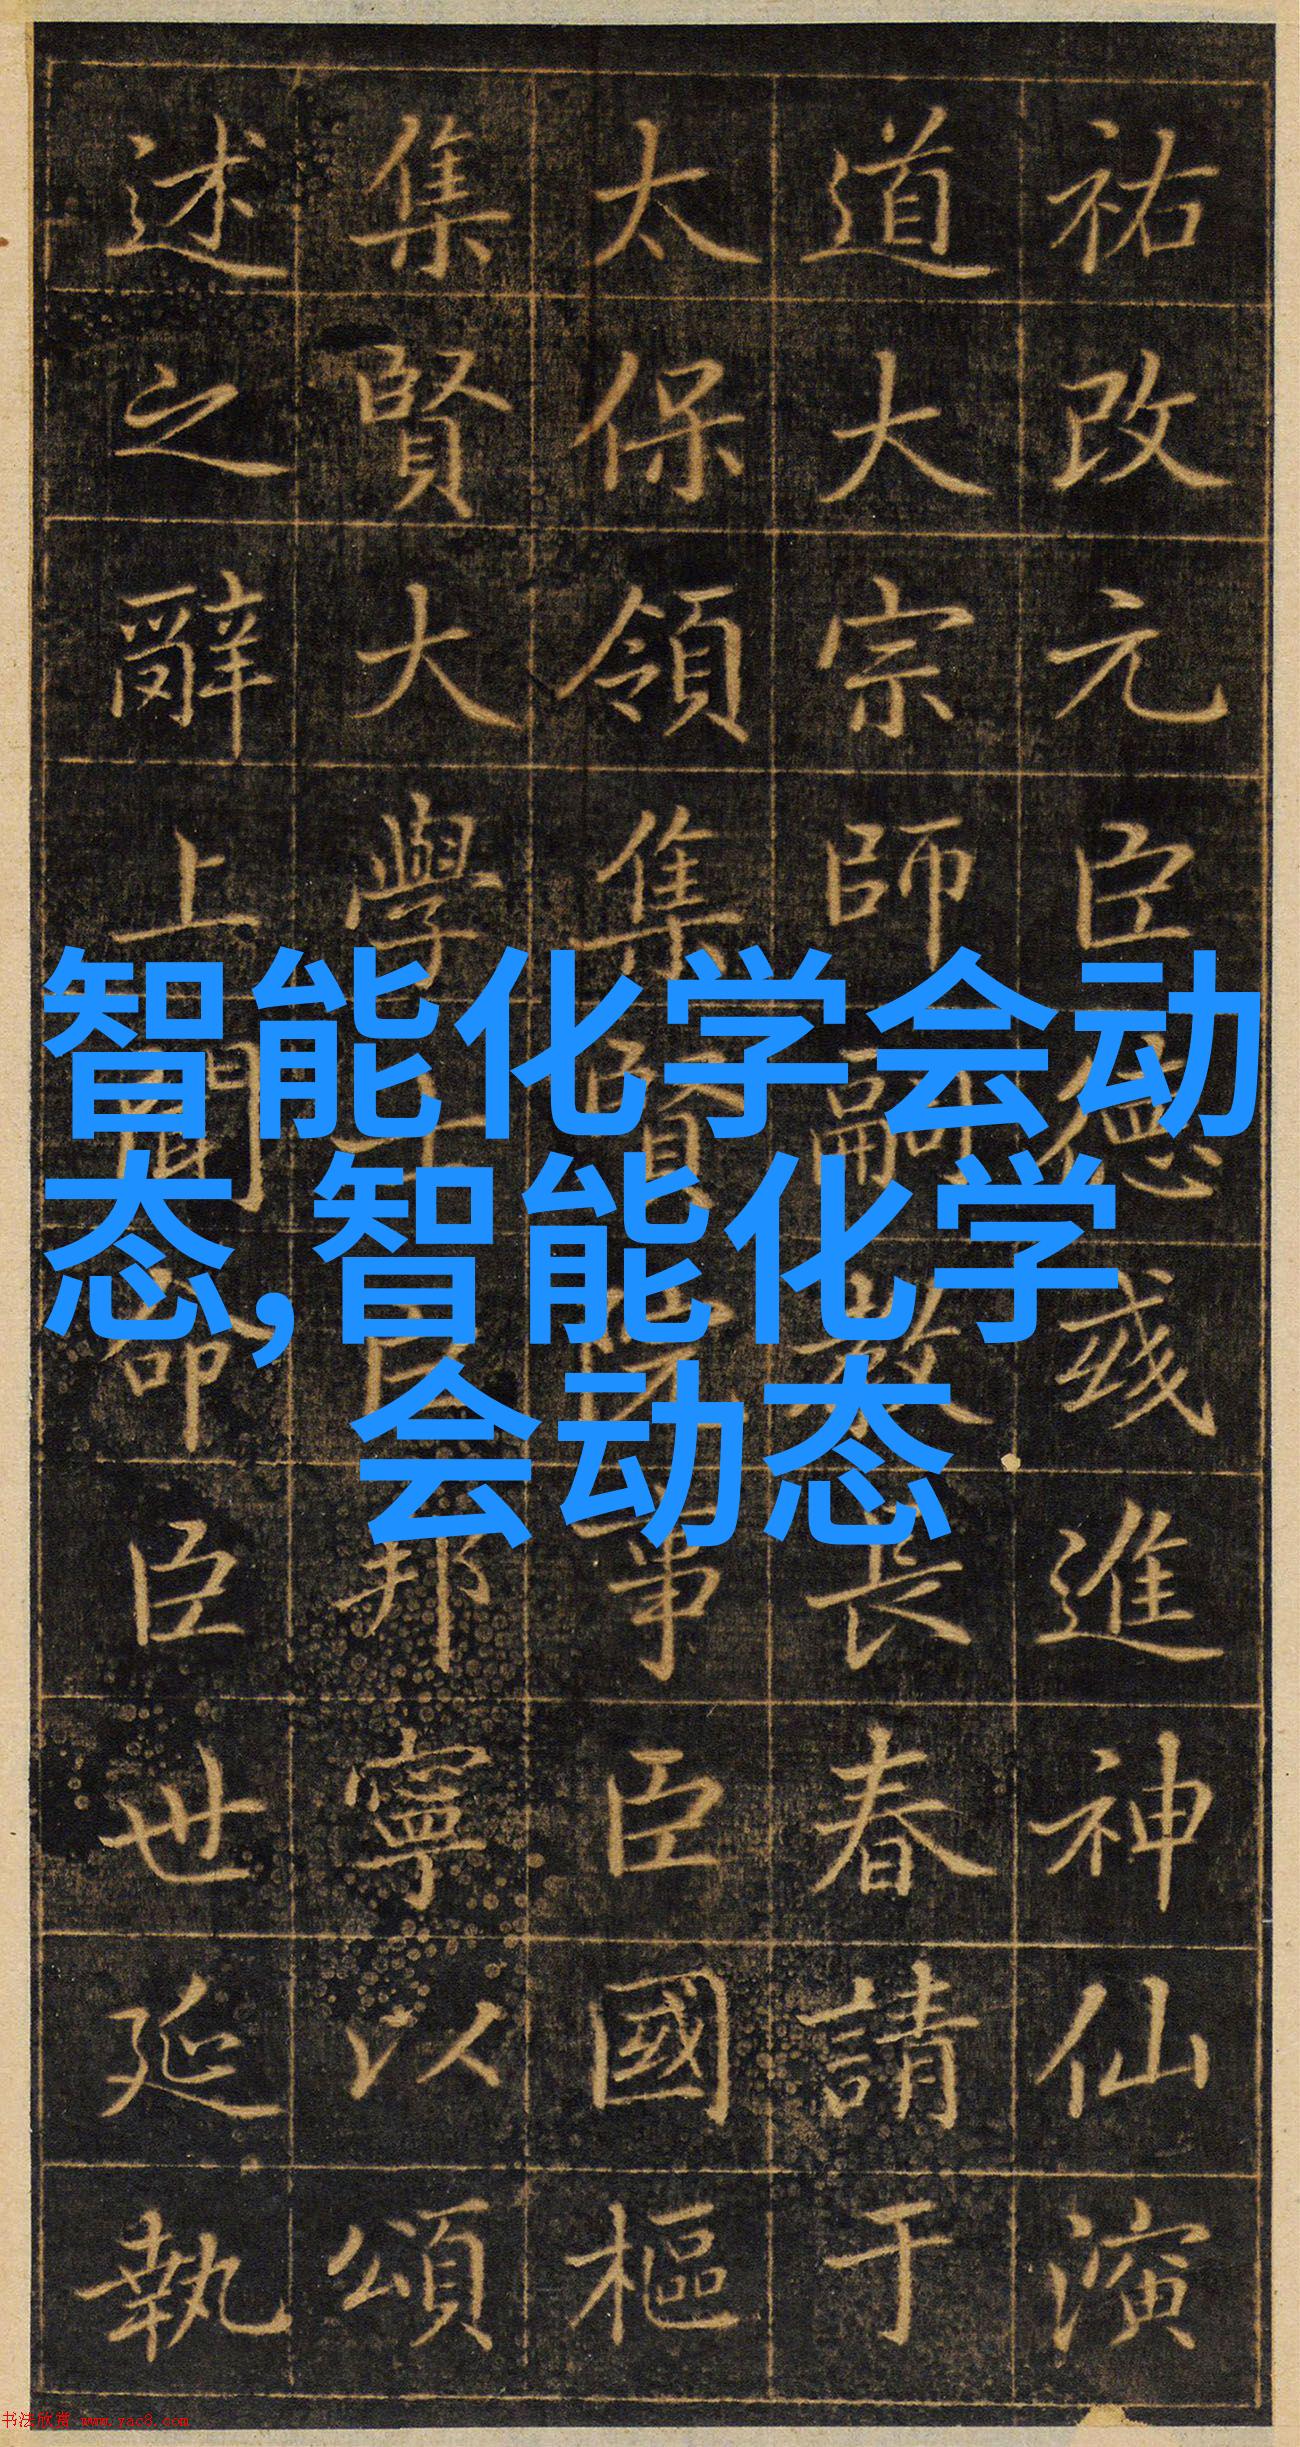 祐改元臣德彧進神仙演
道大宗師嗣教長春請于
太保領集賢院事臣國樞
集賢大學士臣邦寧以頌
述之辭上聞命臣世延執
智能化学会动
态,智能化学
会动态
书法欣赏 www.yac8.com